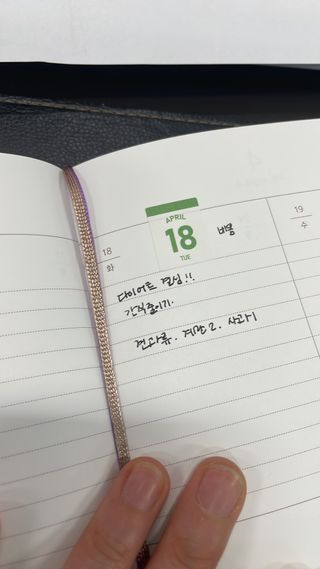 APRIL
18
TUE
18
화
비몽
19
수
다이어트 결심!!
간식줄이기.
견과류. 계란2. 사과1